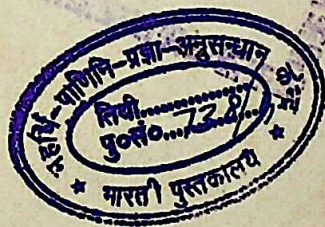 महर्षि-पाणिनि-प्रज्ञा-अनुसन्धान
तिथी..................
पु०सं०....738/....
* भारती पुस्तकालय *